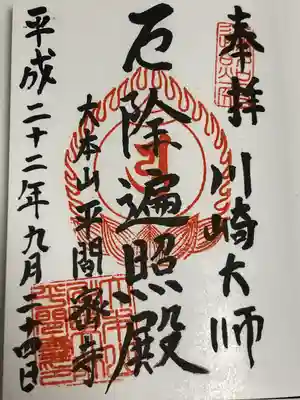 奉拝
川崎大師
厄除遍照殿
大本山平間寺
平成二十二年九月二十四日